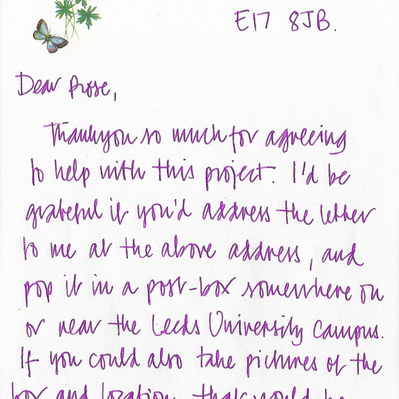 E17 8JB.
Dear Prose,
Thankyou so much for agreeing
to help with this project. I'd be
grateful if you'd address the letter
to me at the above address, and
pop it in a post-box somewhere on
or near the Leeds University Campus.
If you could also take pictures of the
box and location, that would be